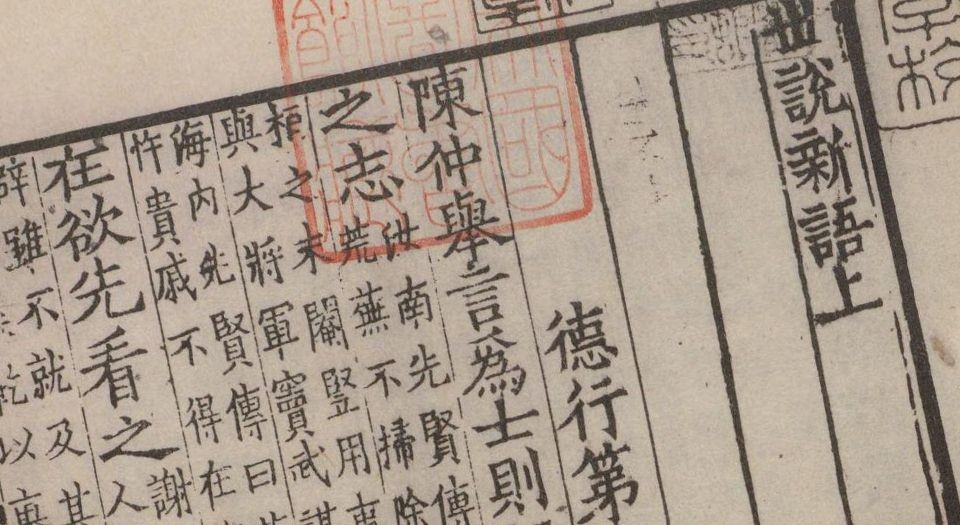 世說新語上
德行第
陳仲舉言為士則
之志
汝南先賢傳
荒蕪不掃除
桓之末閹豎用事
與大將軍竇武謀
海內先賢傳曰
忤貴戚不得在
在欲先看之
謝
人
辟雖不就及其
乾以